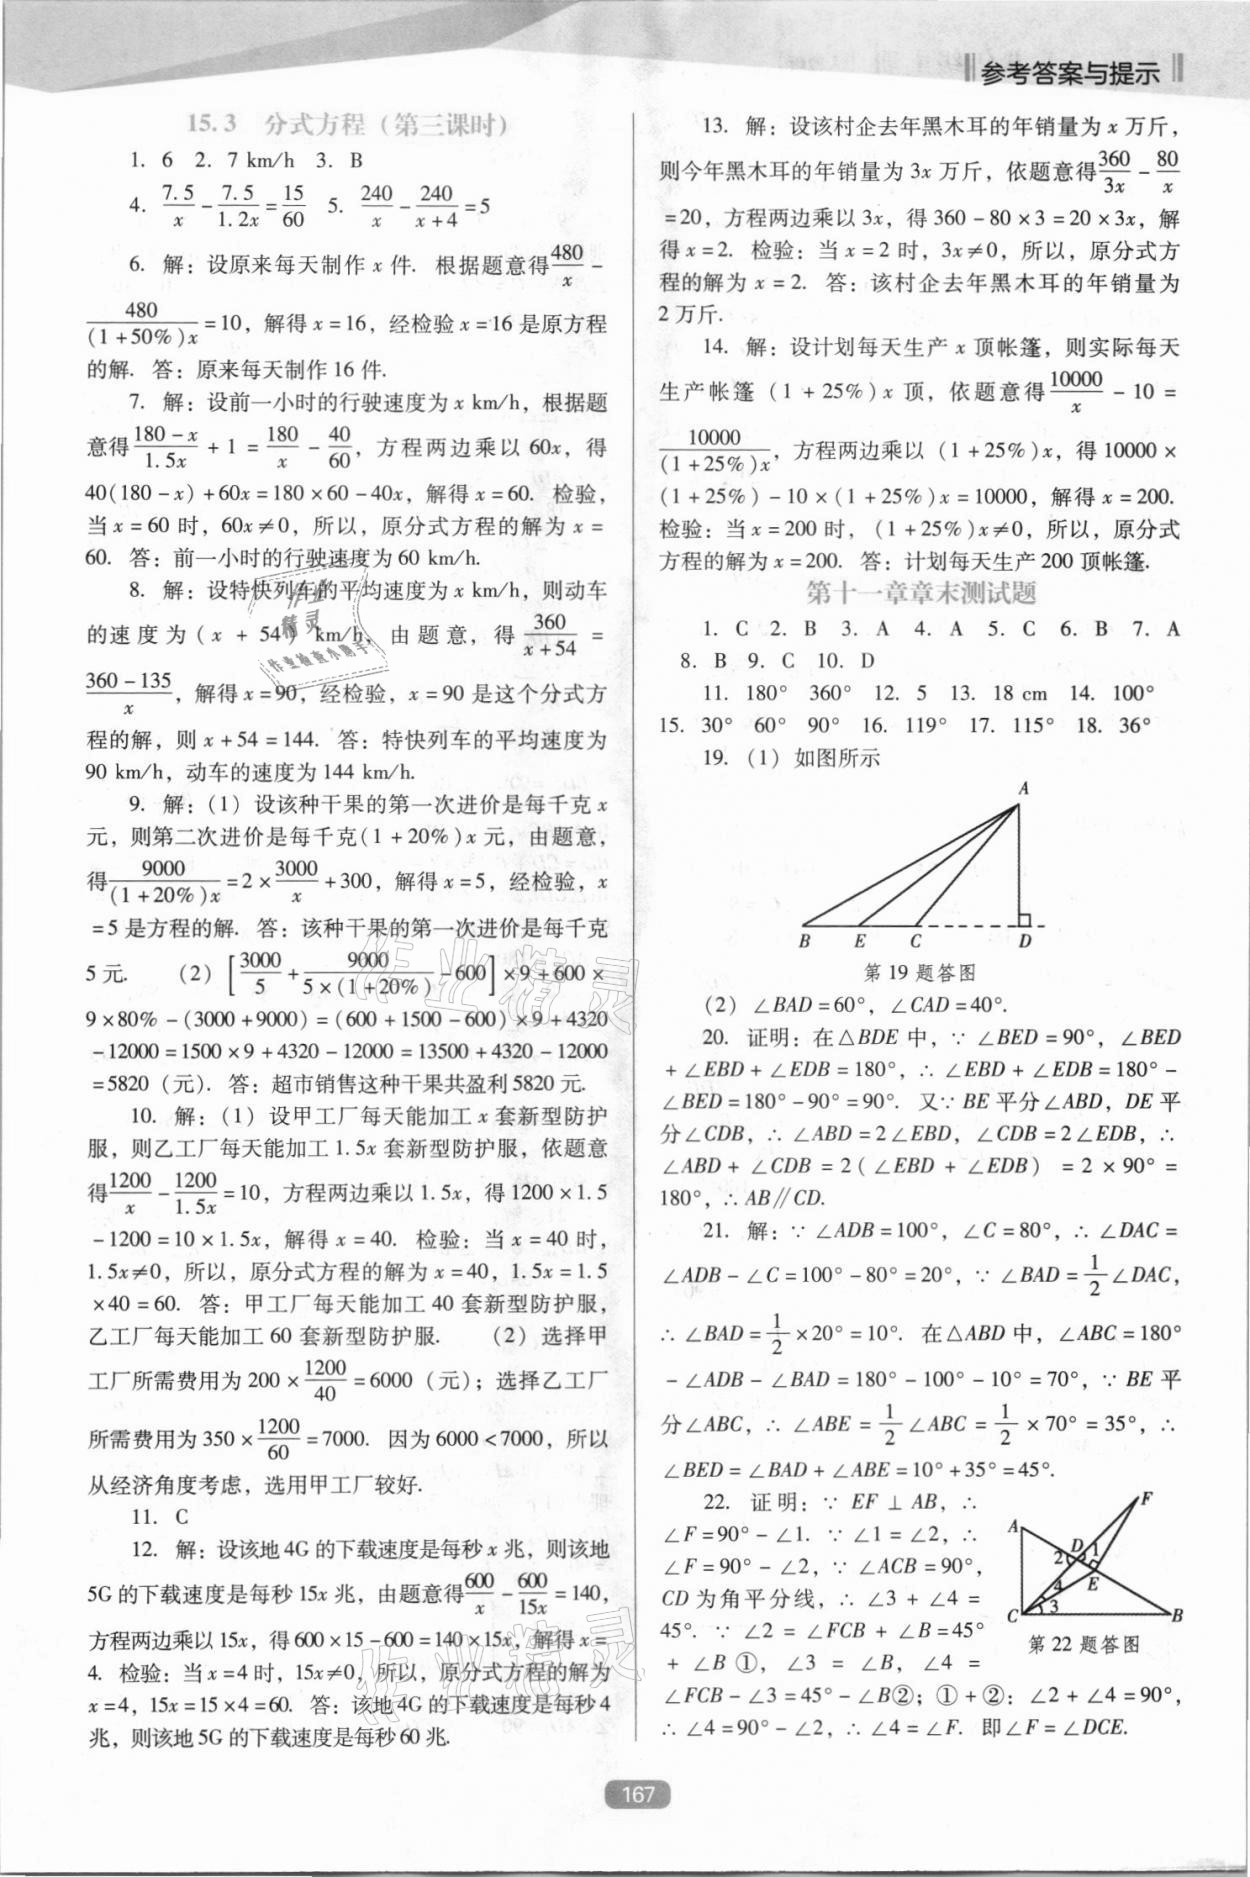 参考答案与提示
15.3 分式方程（第三课时）
1. 6 2. 7 km/h 3. B
4. 7.5/x - 7.5/1.2x = 15/60 5. 240/x - 240/(x+4) = 5
6. 解：设原来每天制作 x 件. 根据题意得 480/x -
480/((1+50%)x) = 10，解得 x=16，经检验 x=16 是原方程
的解. 答：原来每天制作 16 件.
7. 解：设前一小时的行驶速度为 x km/h，根据题
意得 (180-x)/1.5x + 1 = 180/x - 40/60，方程两边乘以 60x，得
40(180-x)+60x=180×60-40x，解得 x=60. 检验，
当 x=60 时，60x≠0，所以，原分式方程的解为 x=
60. 答：前一小时的行驶速度为 60 km/h.
8. 解：设特快列车的平均速度为 x km/h，则动车
的速度为(x+54) km/h，由题意，得 360/(x+54) =
(360-135)/x，解得 x=90，经检验，x=90 是这个分式方
程的解，则 x+54=144. 答：特快列车的平均速度为
90 km/h，动车的速度为 144 km/h.
9. 解：(1) 设该种干果的第一次进价是每千克 x
元，则第二次进价是每千克(1+20%)x 元，由题意，
得 9000/((1+20%)x) = 2×3000/x + 300，解得 x=5，经检验，x
=5 是方程的解. 答：该种干果的第一次进价是每千克
5 元. (2) [3000/5 + 9000/(5×(1+20%)) - 600]×9+600×
9×80%-(3000+9000)=(600+1500-600)×9+4320
-12000=1500×9+4320-12000=13500+4320-12000
=5820（元）. 答：超市销售这种干果共盈利5820 元.
10. 解：(1) 设甲工厂每天能加工 x 套新型防护
服，则乙工厂每天能加工 1.5x 套新型防护服，依题意
得 1200/x - 1200/1.5x = 10，方程两边乘以 1.5x，得 1200×1.5
-1200=10×1.5x，解得 x=40. 检验：当 x=40 时，
1.5x≠0，所以，原分式方程的解为 x=40，1.5x=1.5
×40=60. 答：甲工厂每天能加工 40 套新型防护服，
乙工厂每天能加工 60 套新型防护服. (2) 选择甲
工厂所需费用为 200×1200/40=6000（元）；选择乙工厂
所需费用为 350×1200/60=7000. 因为 6000<7000，所以
从经济角度考虑，选用甲工厂较好.
11. C
12. 解：设该地 4G 的下载速度是每秒 x 兆，则该地
5G 的下载速度是每秒 15x 兆，由题意得 600/x - 600/15x = 140，
方程两边乘以 15x，得 600×15-600=140×15x，解得 x=
4. 检验：当 x=4 时，15x≠0，所以，原分式方程的解为
x=4，15x=15×4=60. 答：该地 4G 的下载速度是每秒 4
兆，则该地 5G 的下载速度是每秒 60 兆.
13. 解：设该村企去年黑木耳的年销量为 x 万斤，
则今年黑木耳的年销量为 3x 万斤，依题意得 360/3x - 80/x
=20，方程两边乘以 3x，得 360-80×3=20×3x，解
得 x=2. 检验：当 x=2 时，3x≠0，所以，原分式方
程的解为 x=2. 答：该村企去年黑木耳的年销量为
2 万斤.
14. 解：设计划每天生产 x 顶帐篷，则实际每天
生产帐篷（1+25%）x 顶，依题意得 10000/x - 10 =
10000/((1+25%)x)，方程两边乘以（1+25%）x，得 10000×
(1+25%)-10×(1+25%)x=10000，解得 x=200.
检验：当 x=200 时，(1+25%)x≠0，所以，原分式
方程的解为 x=200. 答：计划每天生产 200 顶帐篷.
第十一章章末测试题
1. C 2. B 3. A 4. A 5. C 6. B 7. A
8. B 9. C 10. D
11. 180° 360° 12. 5 13. 18 cm 14. 100°
15. 30° 60° 90° 16. 119° 17. 115° 18. 36°
19. (1) 如图所示
A
B E C D
第 19 题答图
(2) ∠BAD=60°，∠CAD=40°.
20. 证明：在△BDE 中，∵ ∠BED=90°，∠BED
+∠EBD+∠EDB=180°，∴ ∠EBD+∠EDB=180°-
∠BED=180°-90°=90°. 又∵ BE 平分∠ABD，DE 平
分∠CDB，∴ ∠ABD=2∠EBD，∠CDB=2∠EDB，∴
∠ABD+∠CDB=2(∠EBD+∠EDB) =2×90°=
180°，∴ AB∥CD.
21. 解：∵ ∠ADB=100°，∠C=80°，∴ ∠DAC=
∠ADB-∠C=100°-80°=20°，∵ ∠BAD=1/2∠DAC，
∴ ∠BAD=1/2×20°=10°. 在△ABD 中，∠ABC=180°
-∠ADB-∠BAD=180°-100°-10°=70°，∵ BE 平
分∠ABC，∴ ∠ABE=1/2∠ABC=1/2×70°=35°，∴
∠BED=∠BAD+∠ABE=10°+35°=45°.
22. 证明：∵ EF⊥AB，∴
∠F=90°-∠1. ∵ ∠1=∠2，∴
∠F=90°-∠2，∵ ∠ACB=90°，
CD 为角平分线，∴ ∠3+∠4=
45°. ∵ ∠2=∠FCB+∠B=45°
+∠B ①，∠3=∠B，∠4=
∠FCB-∠3=45°-∠B②；①+②：∠2+∠4=90°，
∴ ∠4=90°-∠2，∴ ∠4=∠F. 即∠F=∠DCE.
F
A
D 1
2
E
4
3
C B
第 22 题答图
167
作业精灵
作业检查小助手
作业精灵
作业精灵